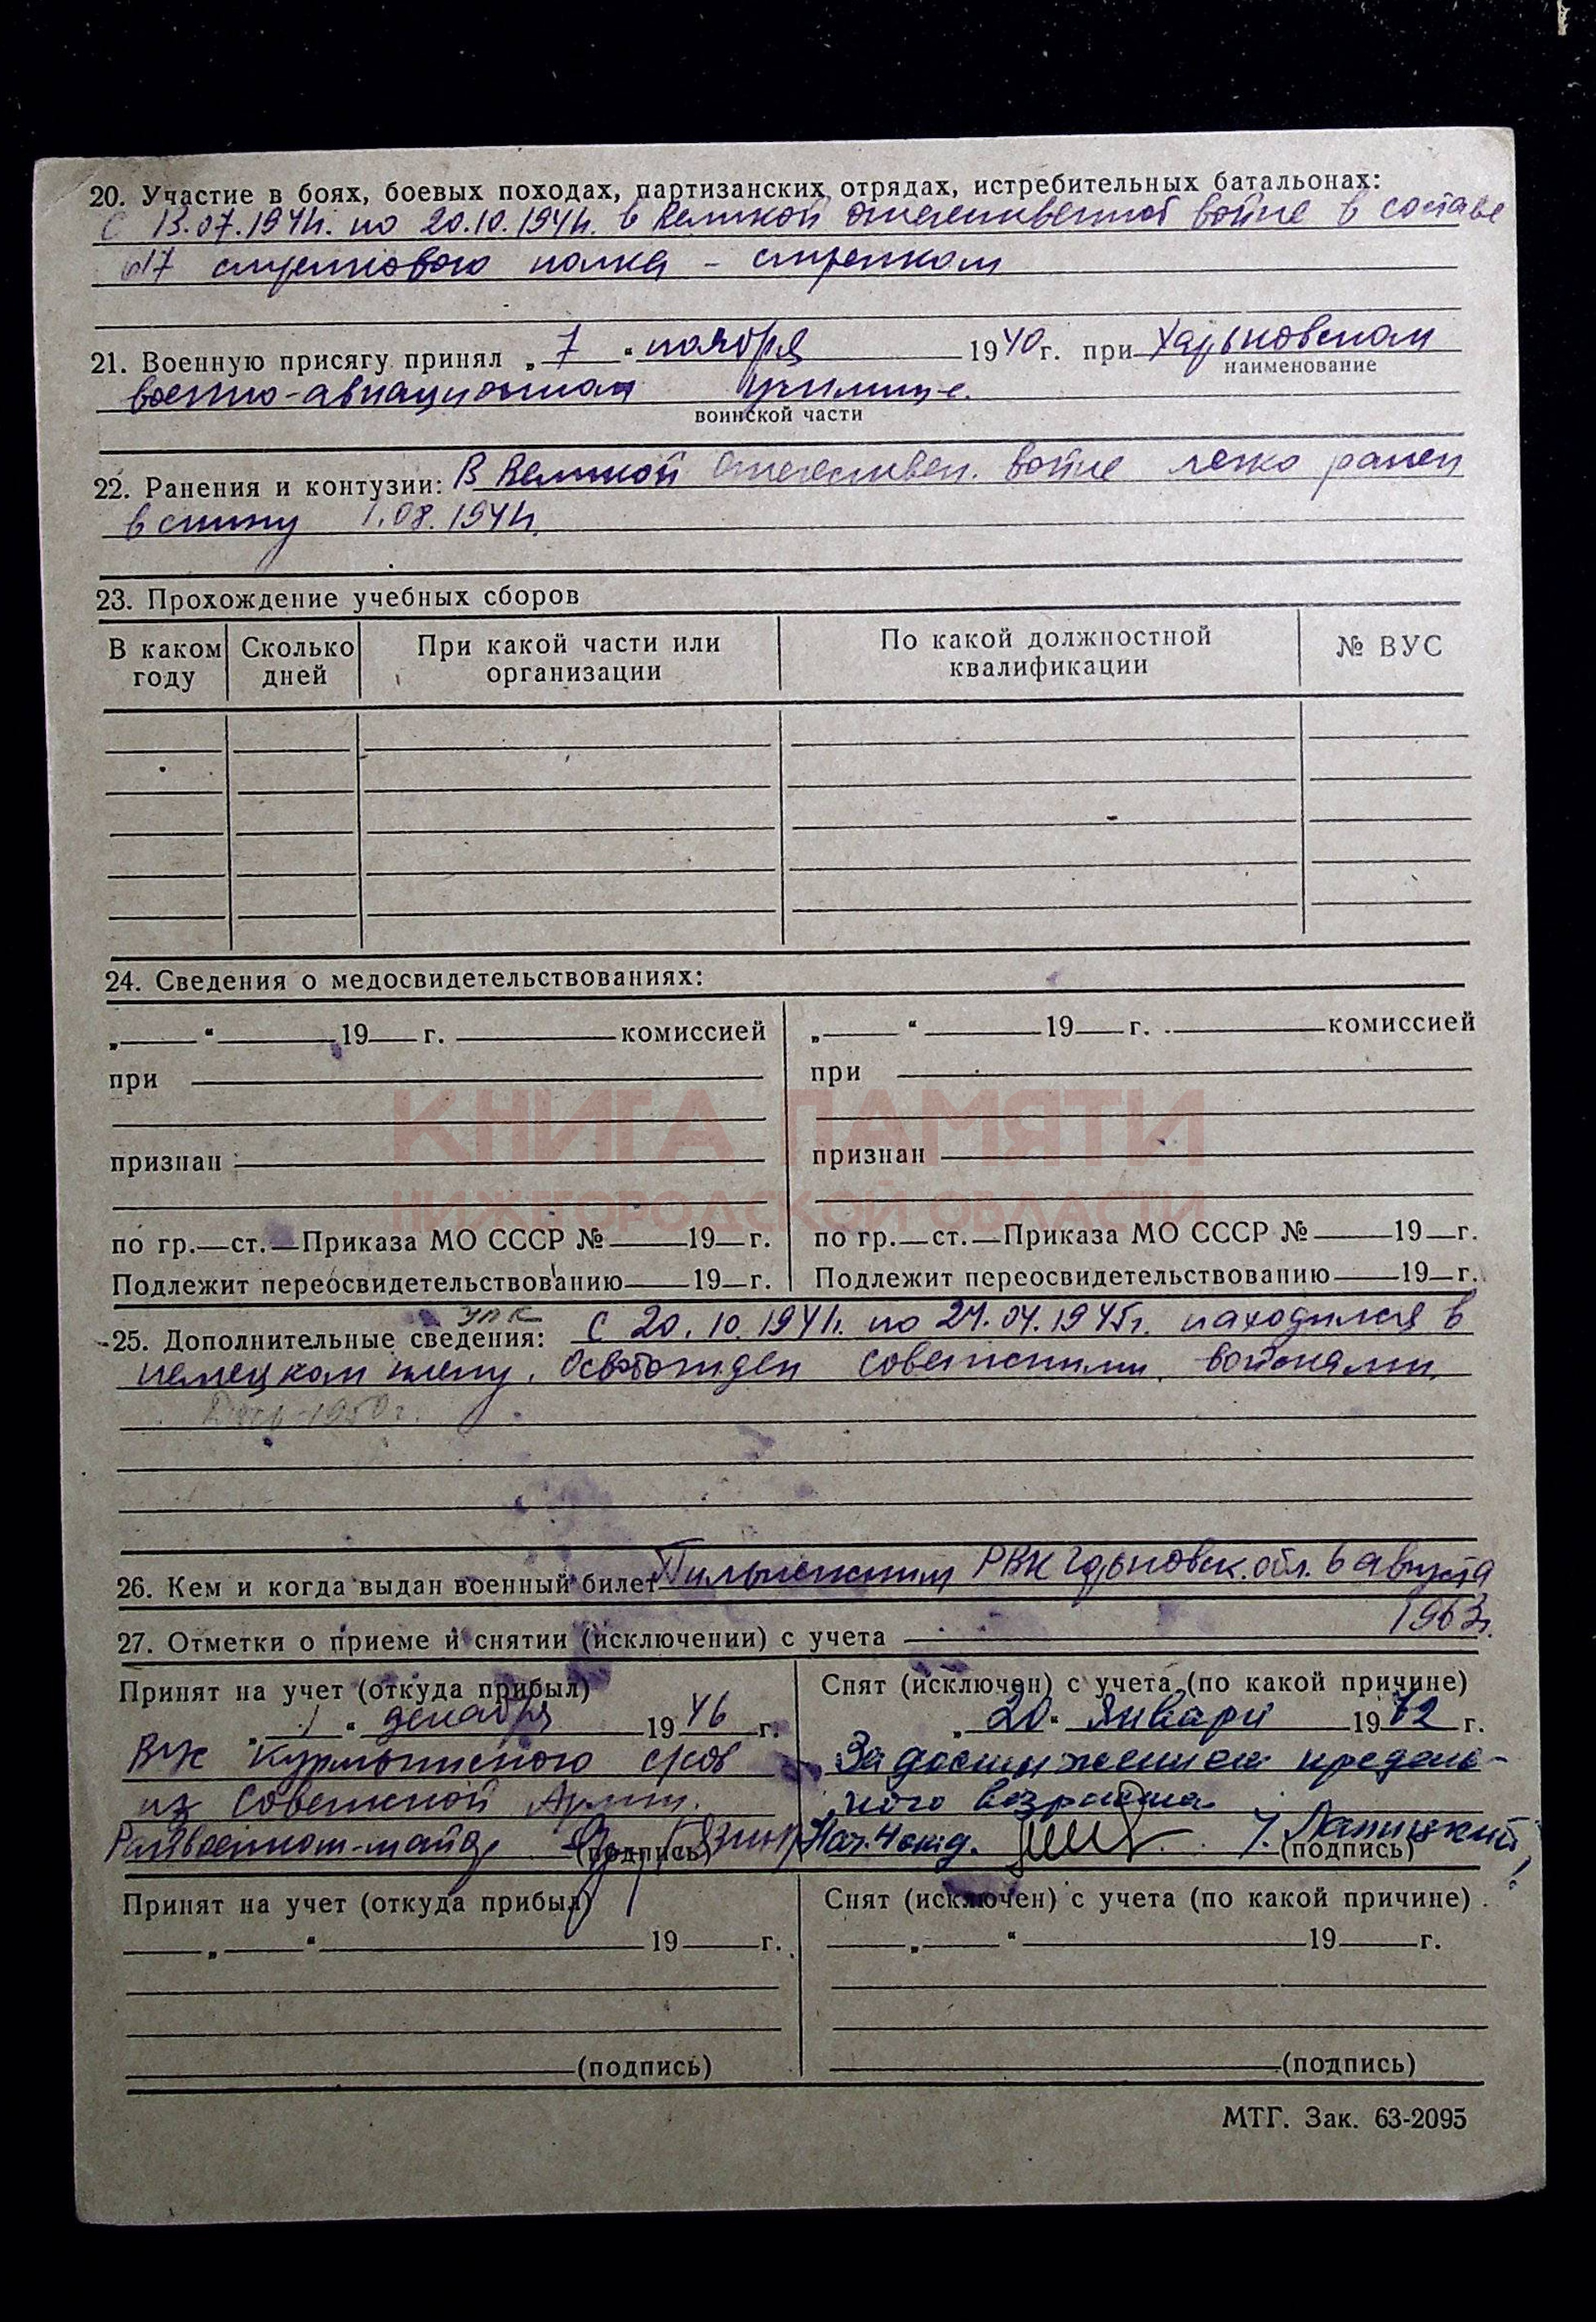 20. Участие в боях, боевых походах, партизанских отрядах, истребительных батальонах:
С 13.07.1941г. по 20.10.1941г. в Великой отечественной войне в составе
стрелкового полка - стрелком
21. Военную присягу принял „ 7 “ ноября 1940 г. при Харьковском
наименование
военно-авиационном училище.
воинской части
22. Ранения и контузии: В Великой Отечествен. войне легко ранен
в спину 1.08.1941г.
23. Прохождение учебных сборов
В каком году Сколько дней При какой части или организации По какой должностной квалификации № ВУС
24. Сведения о медосвидетельствованиях:
„ “ 19 г. комиссией „ “ 19 г. комиссией
при при
КНИГА ПАМЯТИ
признан признан
НИЖЕГОРОДСКОЙ ОБЛАСТИ
по гр. ст. Приказа МО СССР № 19 г. по гр. ст. Приказа МО СССР № 19 г.
Подлежит переосвидетельствованию 19 г. Подлежит переосвидетельствованию 19 г.
УПК
25. Дополнительные сведения: С 20.10.1941г. по 24.04.1945г. находился в
немецком плену. Освобожден советскими войсками.
26. Кем и когда выдан военный билет Пильненским РВК Горьковск. обл. 6 августа
1963г.
27. Отметки о приеме и снятии (исключении) с учета
Принят на учет (откуда прибыл) Снят (исключен) с учета (по какой причине)
„ “ декабря 1946 г. „ 20 “ Января 1972 г.
ВК Курмышского с/сов За достижением предель-
из Советской Армии. ного возраста.
Райвоенком-майор (подпись) Нач. 4 отд. (подпись)
Принят на учет (откуда прибыл) Снят (исключен) с учета (по какой причине)
„ “ 19 г. „ “ 19 г.
(подпись) (подпись)
МТГ. Зак. 63-2095